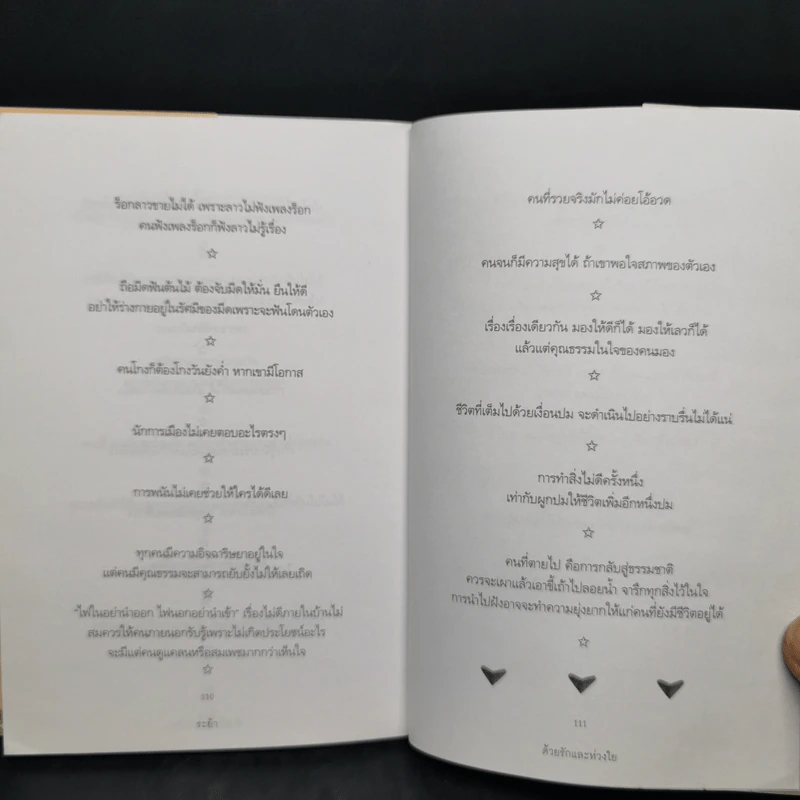 ร็อกลาวขายไม่ได้ เพราะลาวไม่ฟังเพลงร็อก
คนฟังเพลงร็อกก็ฟังลาวไม่รู้เรื่อง
☆
ถือมีดฟันต้นไม้ ต้องจับมีดให้มั่น ยืนให้ดี
อย่าให้ร่างกายอยู่ในรัศมีของมีดเพราะจะฟันโดนตัวเอง
☆
คนโกงก็ต้องโกงวันยังค่ำ หากเขามีโอกาส
☆
นักการเมืองไม่เคยตอบอะไรตรงๆ
☆
การพนันไม่เคยช่วยให้ใครได้ดีเลย
☆
ทุกคนมีความอิจฉาริษยาอยู่ในใจ
แต่คนมีคุณธรรมจะสามารถยับยั้งไม่ให้เลยเถิด
☆
"ไฟในอย่านำออก ไฟนอกอย่านำเข้า" เรื่องไม่ดีภายในบ้านไม่
สมควรให้คนภายนอกรับรู้เพราะไม่เกิดประโยชน์อะไร
จะมีแต่คนดูแคลนหรือสมเพชมากกว่าเห็นใจ
☆
110
ระย้า
คนที่รวยจริงมักไม่ค่อยโอ้อวด
☆
คนจนก็มีความสุขได้ ถ้าเขาพอใจสภาพของตัวเอง
☆
เรื่องเรื่องเดียวกัน มองให้ดีก็ได้ มองให้เลวก็ได้
แล้วแต่คุณธรรมในใจของคนมอง
☆
ชีวิตที่เต็มไปด้วยเงื่อนปม จะดำเนินไปอย่างราบรื่นไม่ได้แน่
☆
การทำสิ่งไม่ดีครั้งหนึ่ง
เท่ากับผูกปมให้ชีวิตเพิ่มอีกหนึ่งปม
☆
คนที่ตายไป คือการกลับสู่ธรรมชาติ
ควรจะเผาแล้วเอาขี้เถ้าไปลอยน้ำ จารึกทุกสิ่งไว้ในใจ
การนำไปฝังอาจจะทำความยุ่งยากให้แก่คนที่ยังมีชีวิตอยู่ได้
☆
111
ด้วยรักและห่วงใย